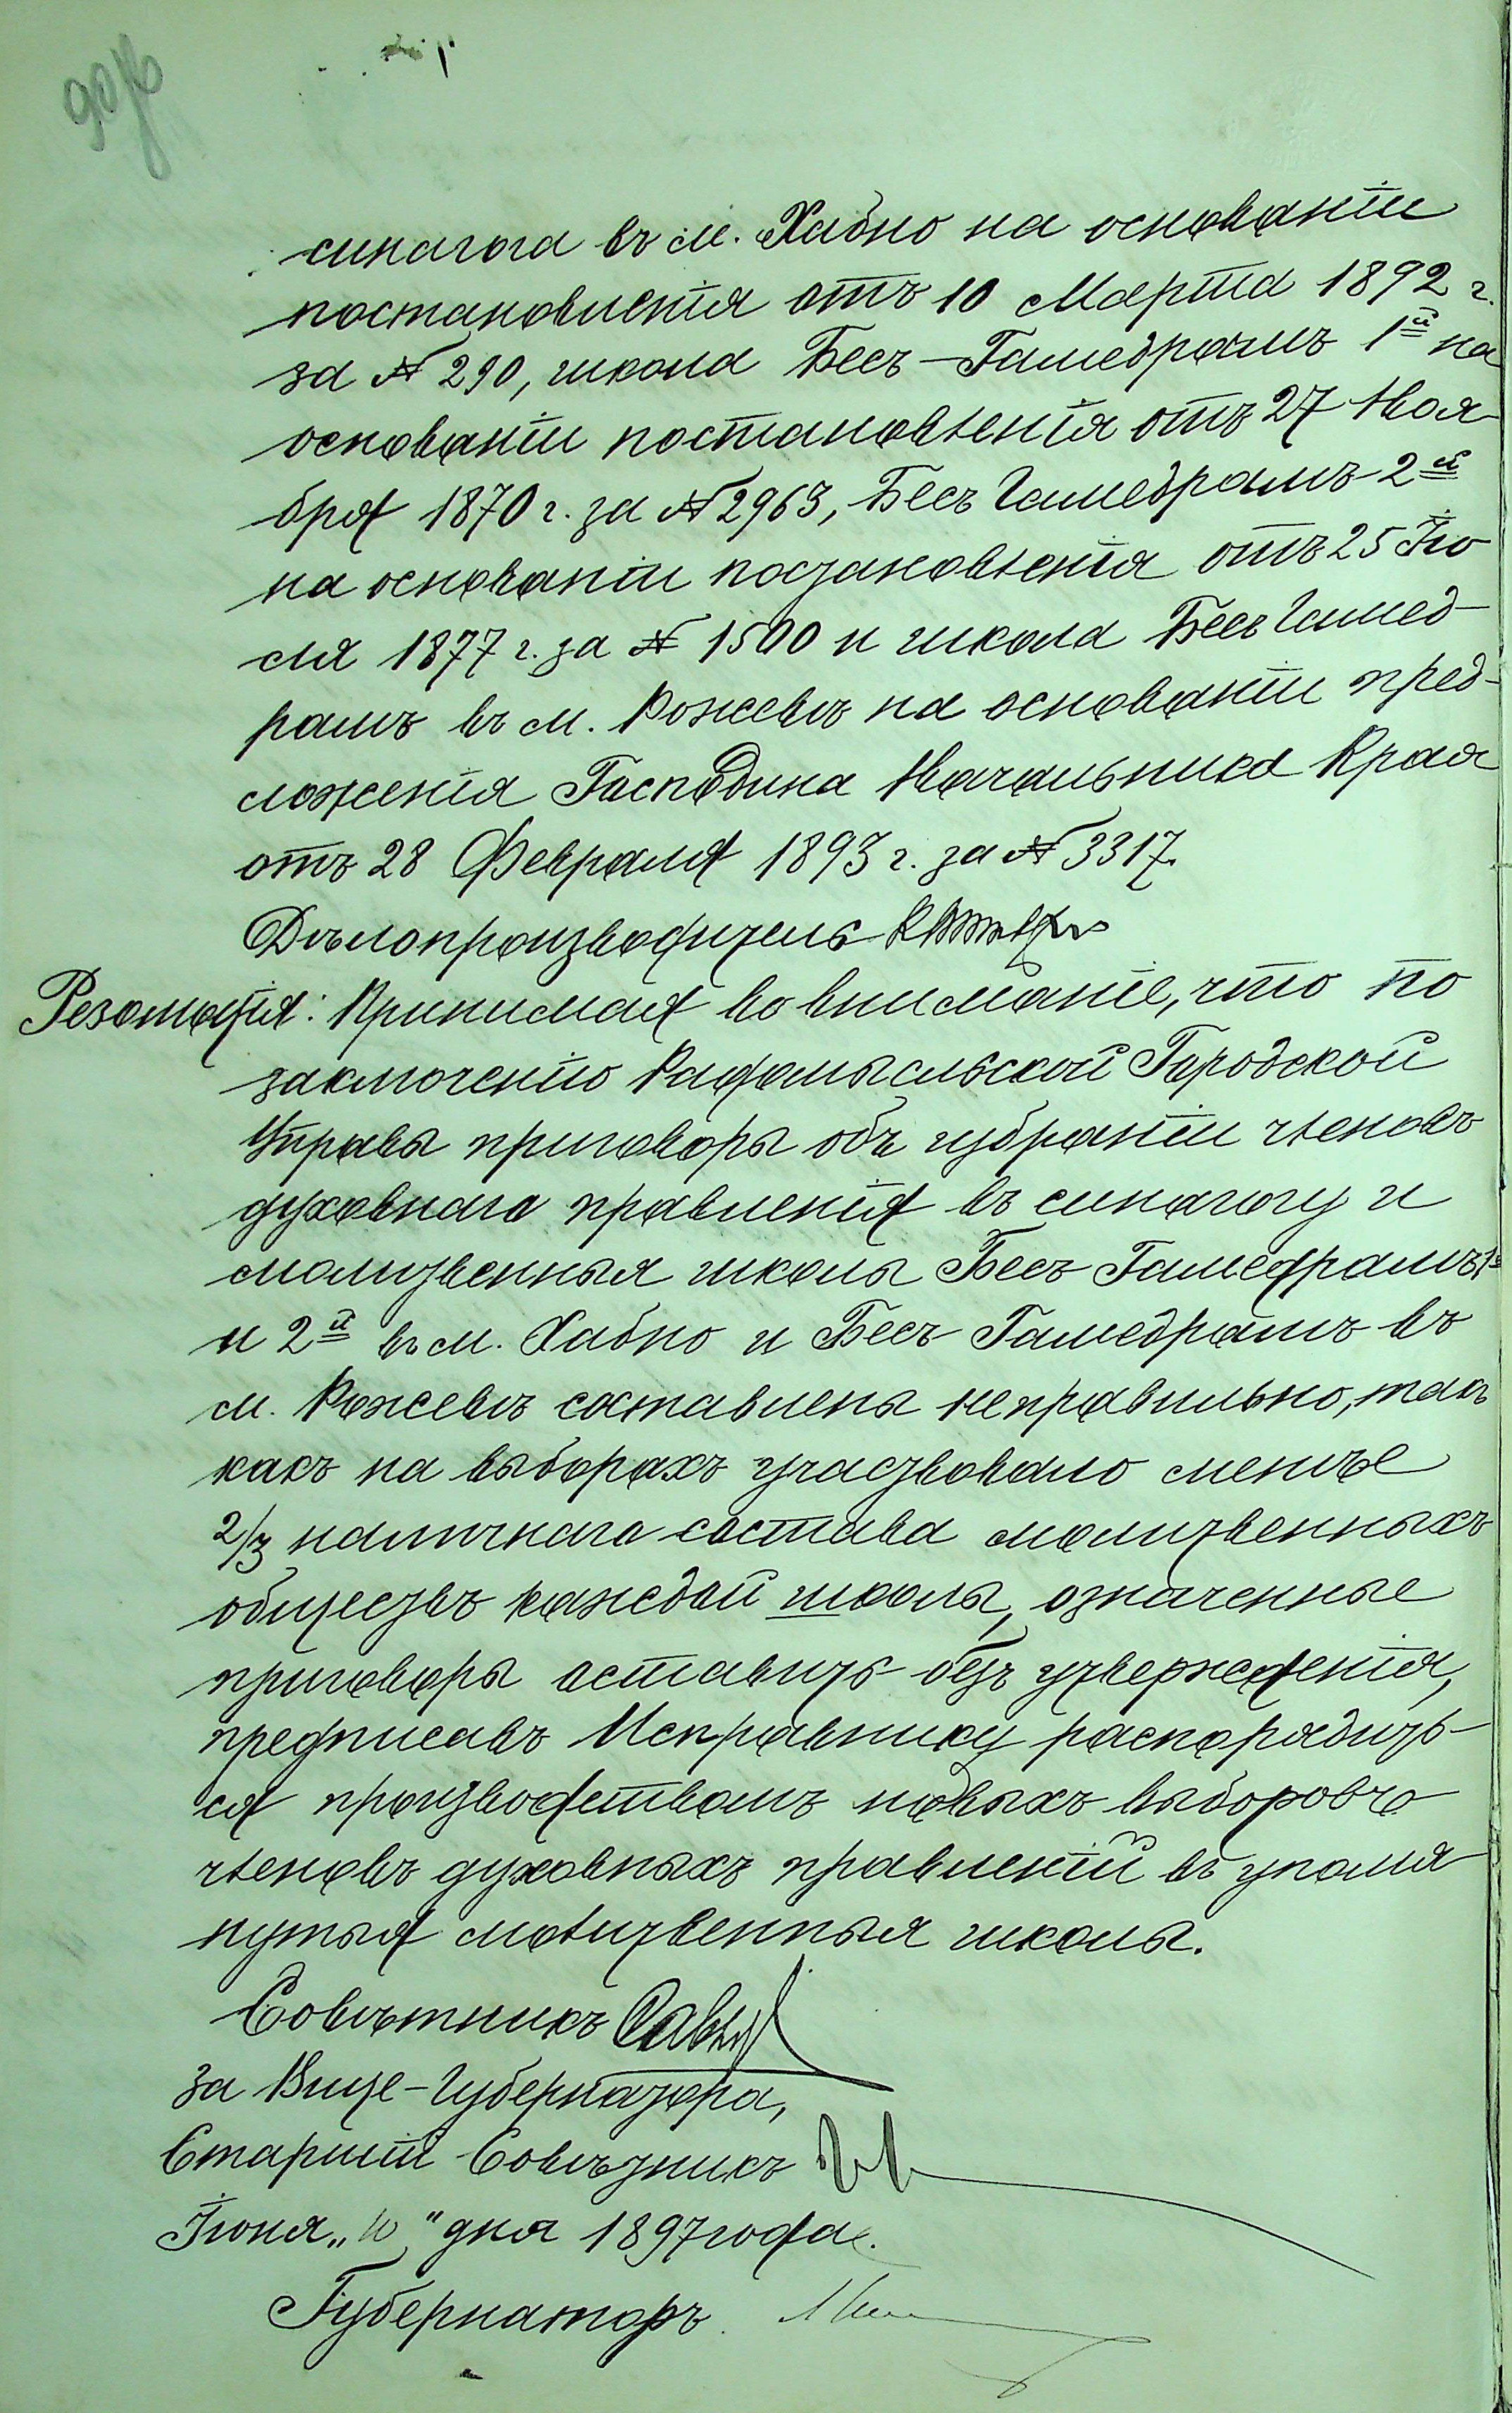 синагога въ м. Хабно на основаніи
постановленія отъ 10 Марта 1892 г.
за № 290, школа Бесъ-Гамедрашъ 1й на
основаніи постановленія отъ 27 Ноя-
бря 1870 г. за № 2963, Бесъ Гамедрашъ 2й
на основаніи постановленія отъ 25 Ію
ля 1877 г. за № 1500 и школа Бесъ Гамед-
рашъ въ м. Рожевѣ на основаніи пред-
ложенія Господина Начальника Края
отъ 28 Февраля 1893 г. за № 3317.
Дѣлопроизводитель
Резолюція: Принимая во вниманіе, что по
заключенію Радомысльской Городской
Управы приговоры объ избраніи членовъ
духовнаго правленія въ синагогу и
молитвенныя школы Бесъ Гамедрашъ 1й
и 2й въ м. Хабно и Бесъ Гамедрашъ въ
м. Рожевѣ составлены неправильно, такъ
какъ на выборахъ участвовало менѣе
2/3 наличнаго состава молитвенныхъ
обществъ каждой школы, означенные
приговоры оставить безъ утвержденія,
предписавъ Исправнику распорядить-
ся производствомъ новыхъ выборовъ
членовъ духовныхъ правленій въ упомя
нутыя молитвенныя школы.
Совѣтникъ
за Вице-Губернатора,
Старшій Совѣтникъ
Іюня „10" дня 1897 года.
Губернаторъ